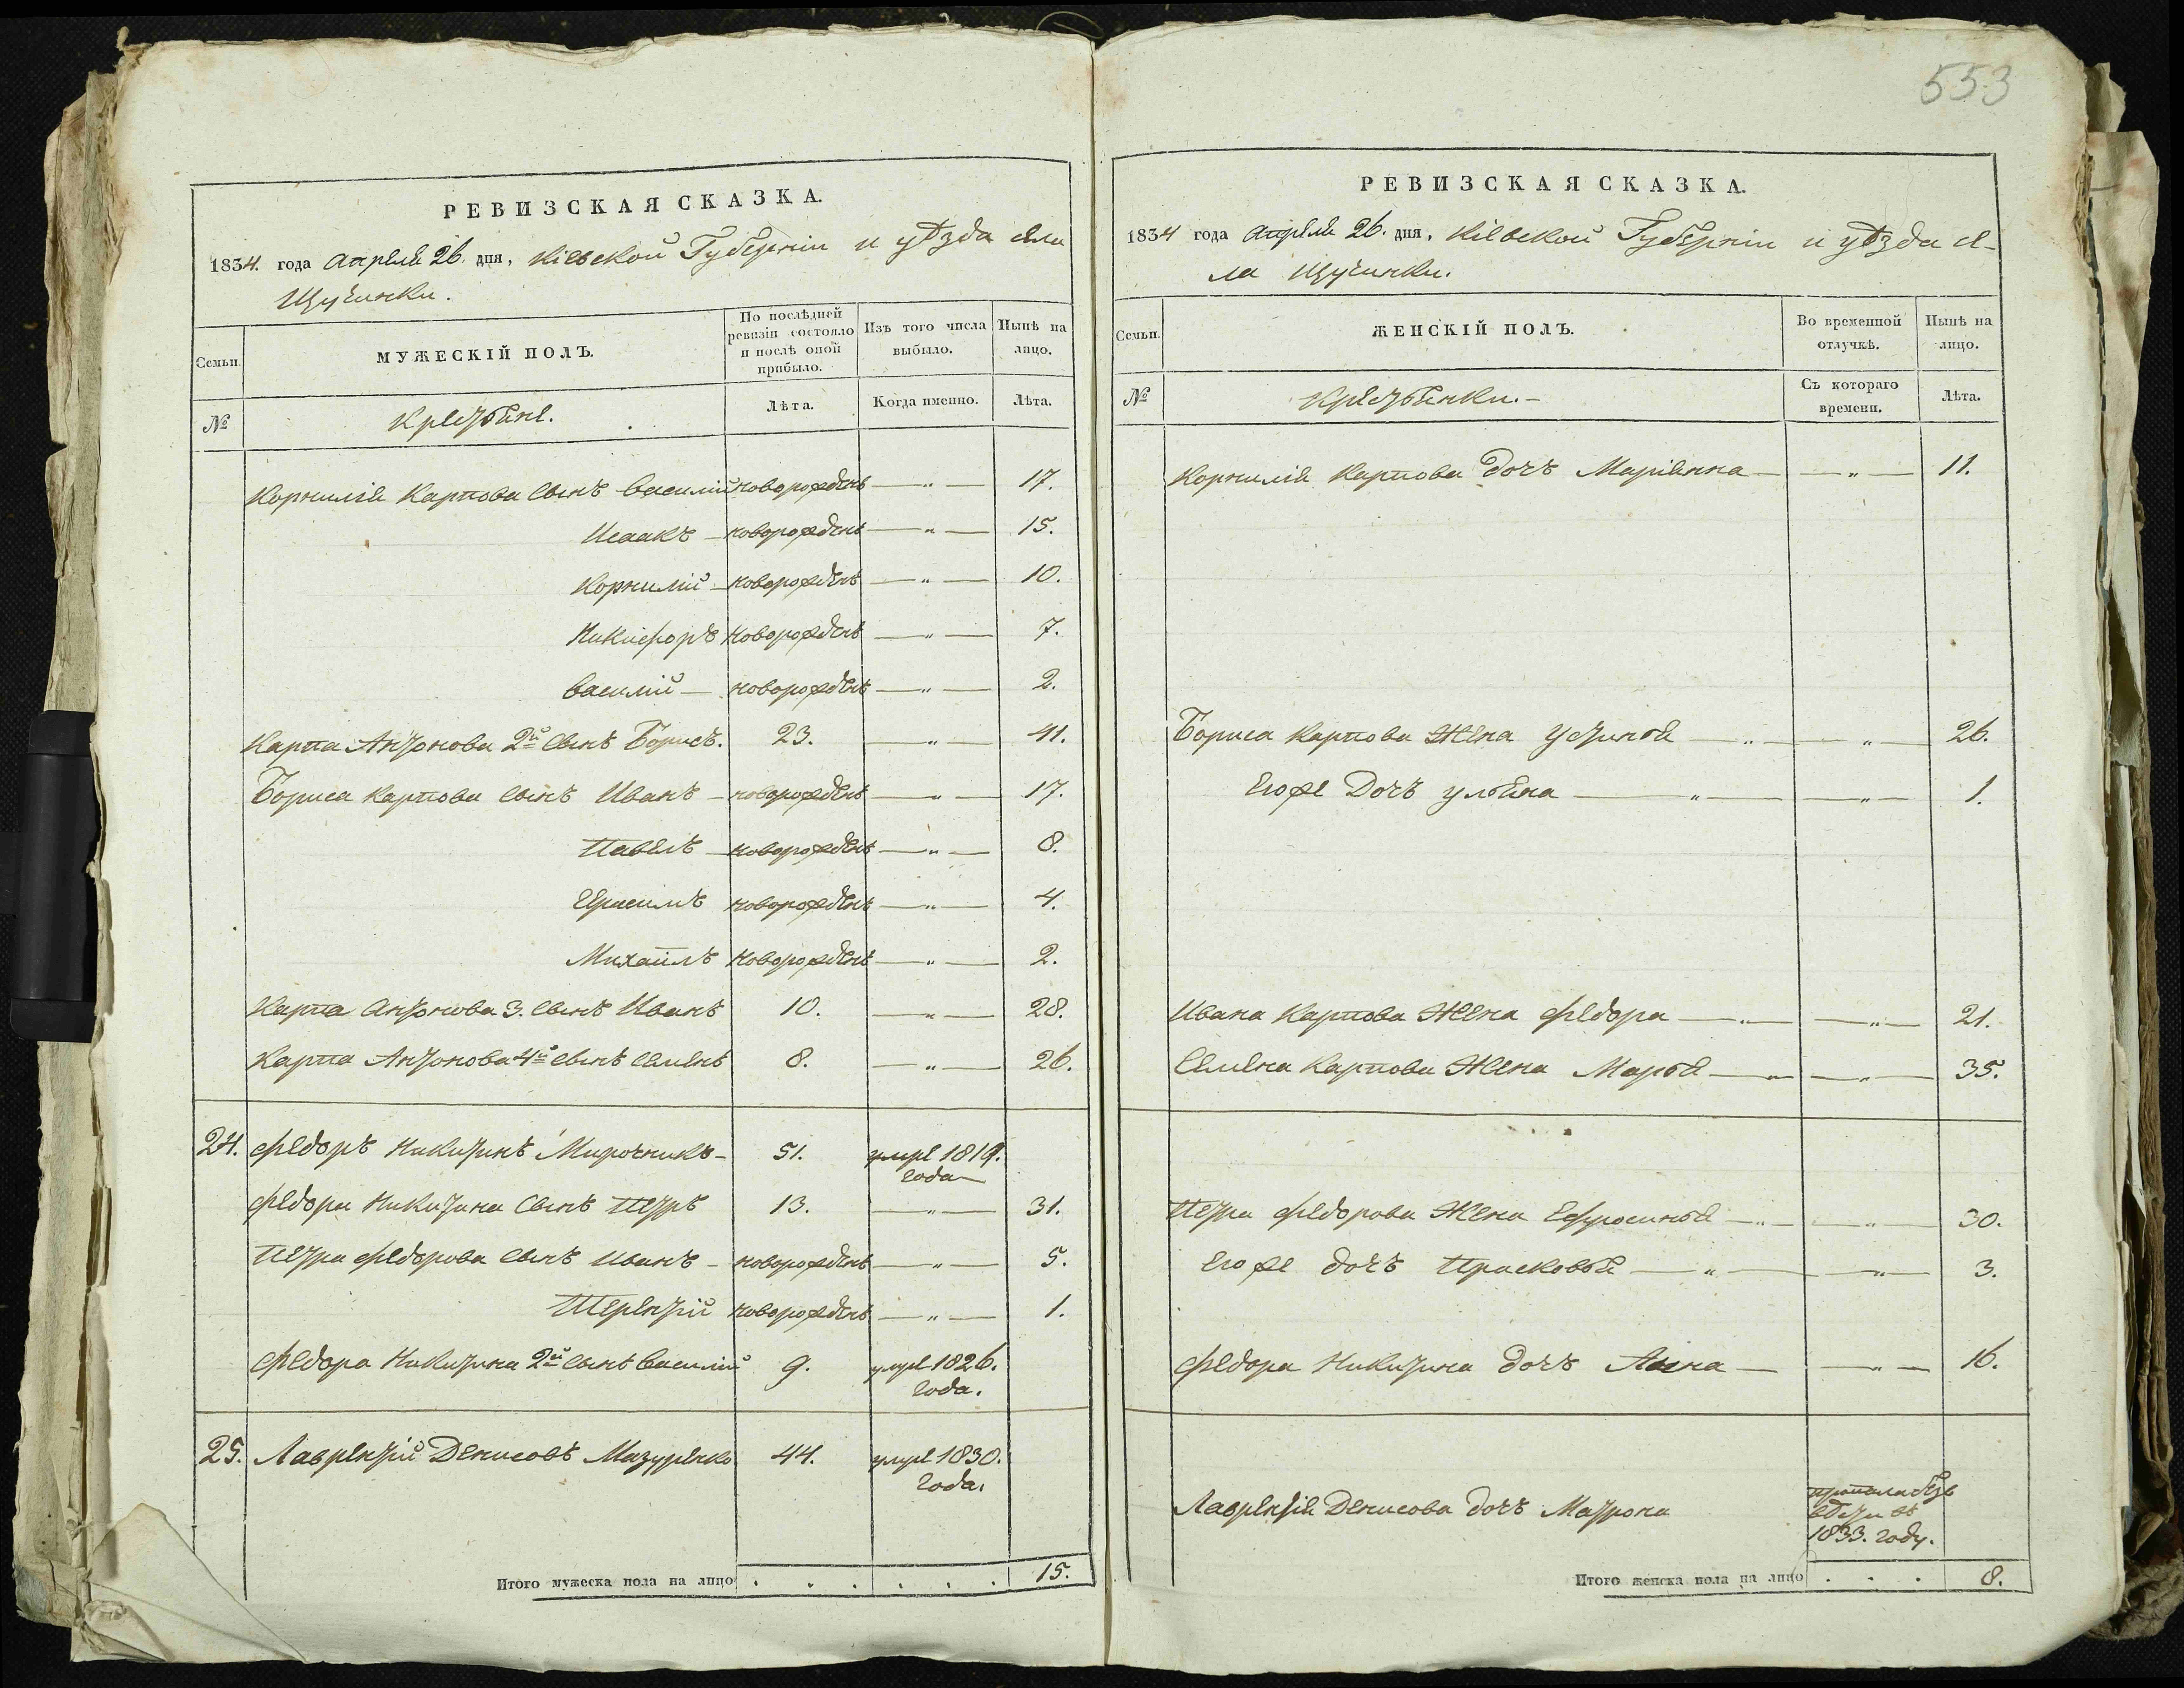 РЕВИЗСКАЯ СКАЗКА.
1834. года Апреля 26. дня, Кіевской Губерніи и уѣзда села
Щучинки.
Семьи.
МУЖЕСКІЙ ПОЛЪ.
По послѣдней
ревизіи состояло
и послѣ оной
прибыло.
Изъ того числа
выбыло.
Нынѣ на
лицо.
№
Крестьяне.
Лѣта.
Когда именно.
Лѣта.
Корнилія Карпова сынъ Василій новорожденъ — „ — 17.
Исаакъ — новорожденъ — „ — 15.
Корнилій — новорожденъ — „ — 10.
Никифоръ новорожденъ — „ — 7.
Василій — новорожденъ — „ — 2.
Карпа Антонова 2й сынъ Борисъ. 23. — „ — 41.
Бориса Карпова сынъ Иванъ — новорожденъ — „ — 17.
Павелъ — новорожденъ — „ — 8.
Герасимъ новорожденъ — „ — 4.
Михаилъ новорожденъ — „ — 2.
Карпа Антонова 3. сынъ Иванъ 10. — „ — 28.
Карпа Антонова 4й сынъ Семенъ 8. — „ — 26.
24. Федоръ Никитинъ Мирочникъ — 51. умре 1819.
года
Федора Никитина сынъ Петръ 13. — „ — 31.
Петра Федорова сынъ Иванъ — новорожденъ — „ — 5.
Терентій новорожденъ — „ — 1.
Федора Никитина 2й сынъ Василій 9. умре 1826.
года.
25. Лаврентій Денисовъ Мазуренко 44. умре 1830.
года.
Итого мужеска пола на лицо . . . . . . 15.
553
РЕВИЗСКАЯ СКАЗКА.
1834 года Апреля 26. дня, Кіевской Губерніи и уѣзда се-
ла Щучинки.
Семьи.
ЖЕНСКІЙ ПОЛЪ.
Во временной
отлучкѣ.
Нынѣ на
лицо.
№
Крестьянки. —
Съ котораго
времени.
Лѣта.
Корнилія Карпова дочь Маріянна — „ — 11.
Бориса Карпова жена Устинья — „ — „ — 26.
Его же дочь Ульяна — „ — „ — 1.
Ивана Карпова жена Федора — „ — „ — 21.
Семена Карпова жена Марья — „ — „ — 35.
Петра Федорова жена Ефросинья — „ — „ — 30.
Его же дочь Прасковья — „ — „ — 3.
Федора Никитина дочь Анна — „ — 16.
Лаврентія Денисова дочь Матрона
пропала безъ
вѣсти въ
1833. году.
Итого женска пола на лицо . . . 8.